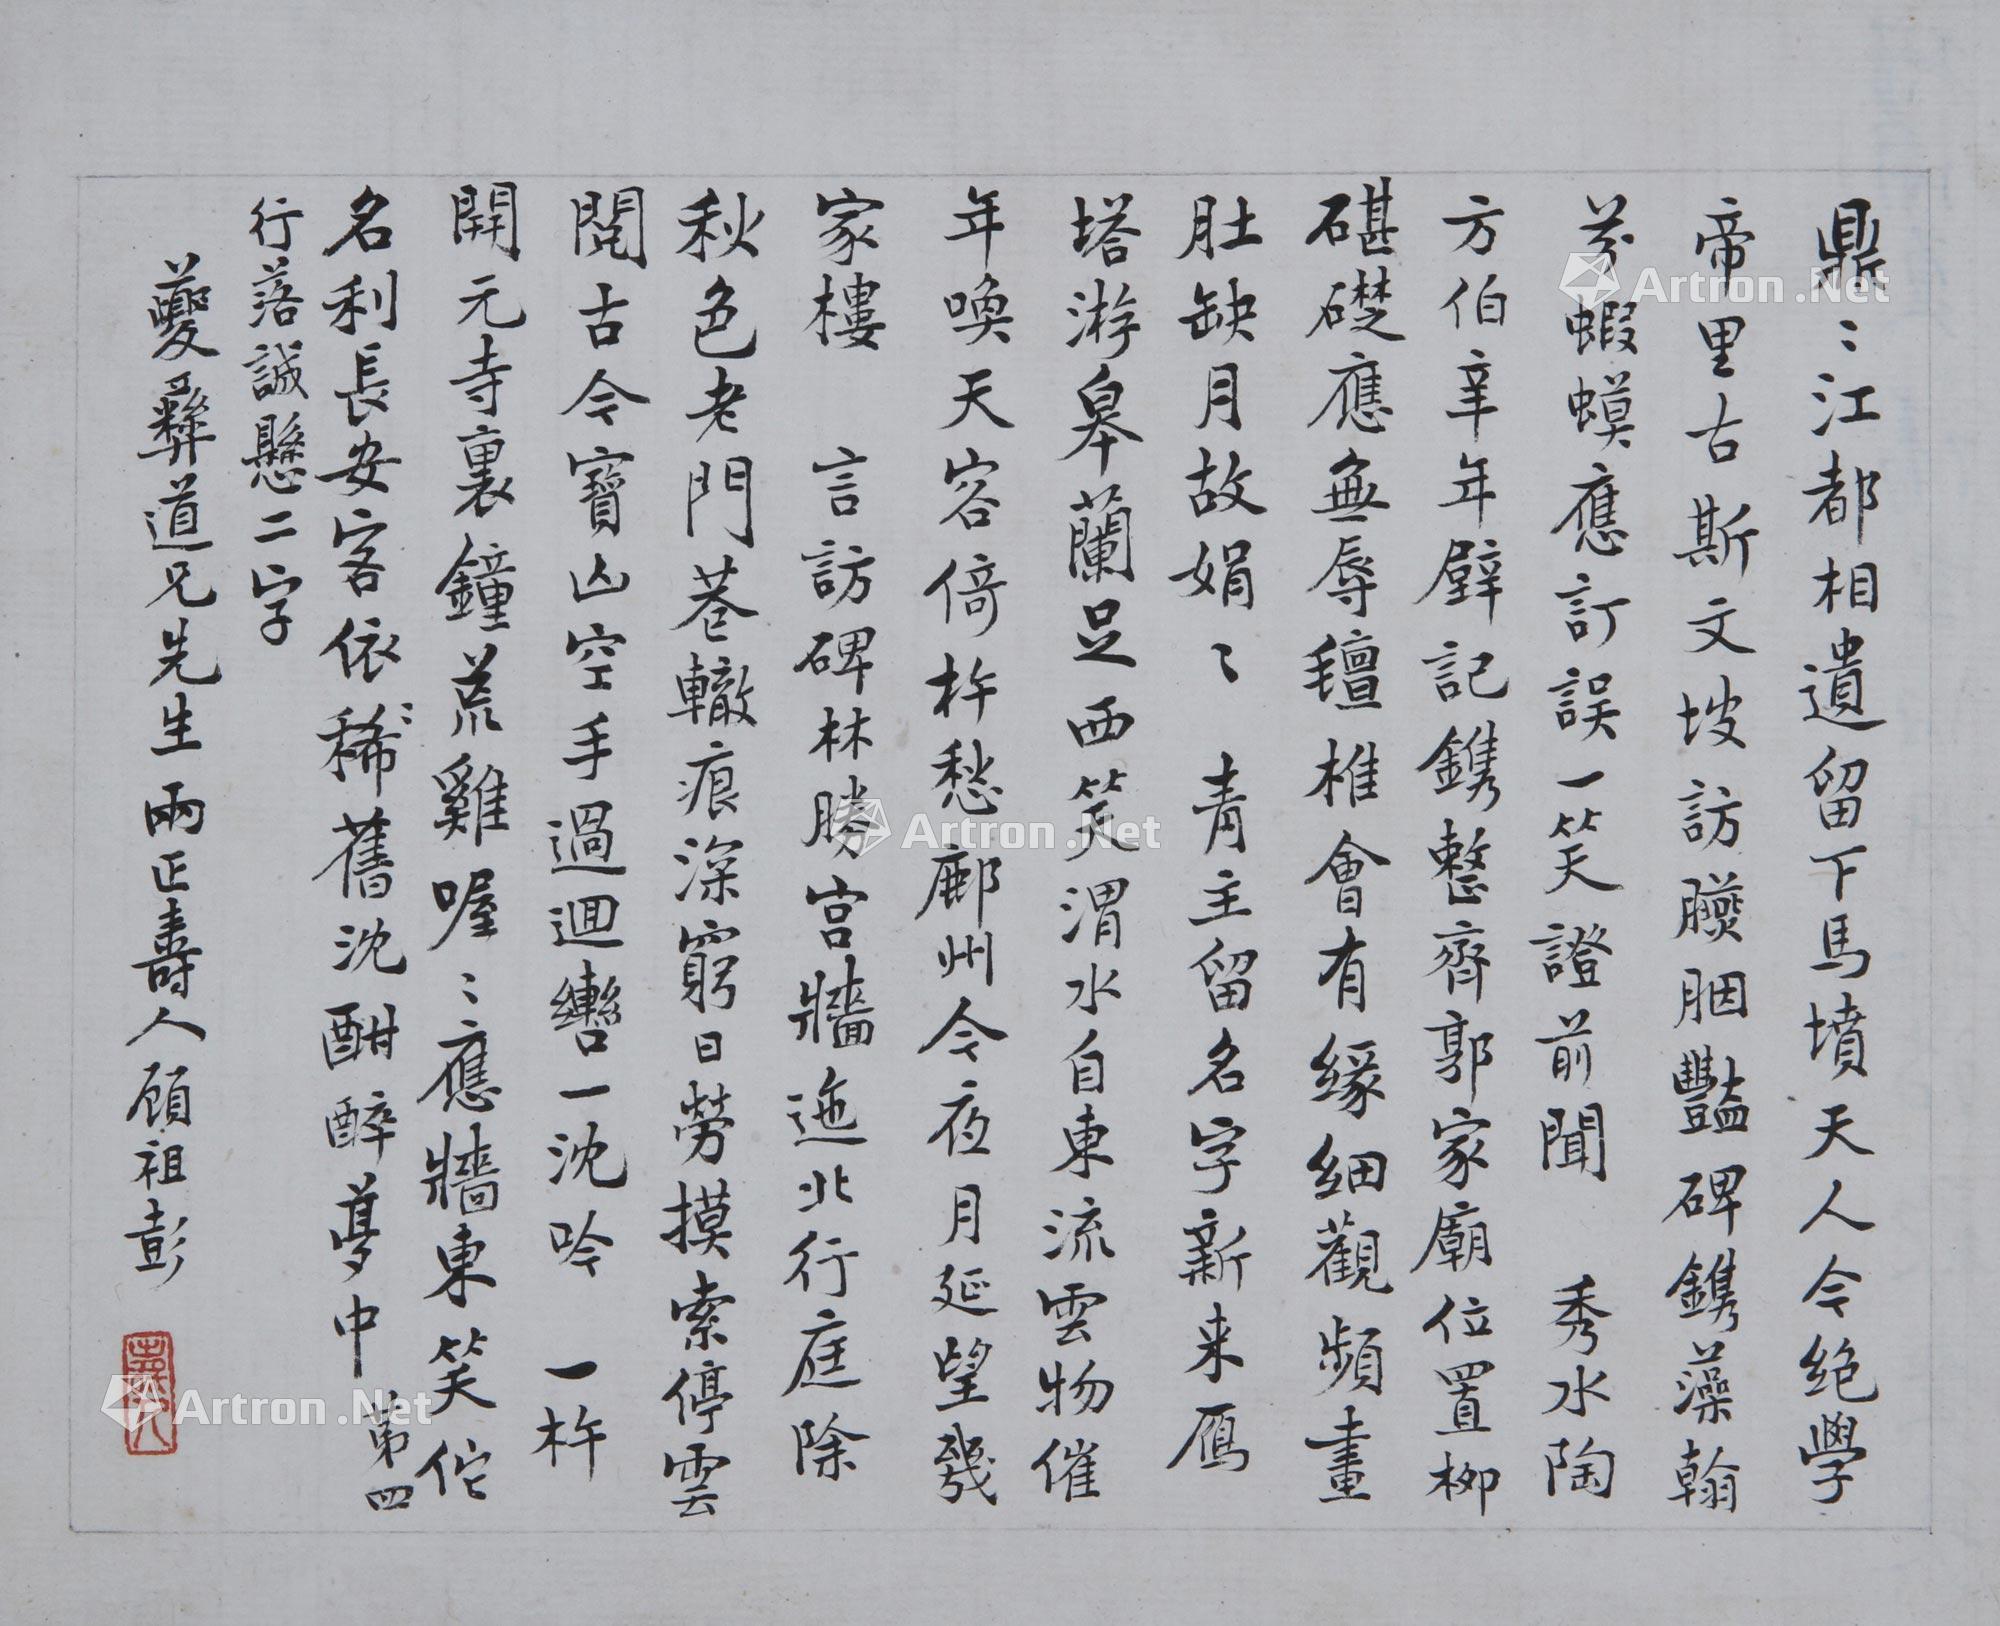 鼎〻江都相遺留下馬墳天人今絕學
帝里古斯文坡訪臙胭豔碑鐫藻翰
芬蝦蟆應訂誤一笑證前聞 秀水陶
方伯辛年壁記鐫整齊郭家廟位置柳
碪礎應無辱氊椎會有緣細觀頻畫
肚缺月故娟〻 青主留名字新来鴈
塔游皋蘭足西笑渭水自東流雲物催
年喚天容倚杵愁鄜州今夜月延望幾
家樓 言訪碑林勝宮牆迤北行庭除
秋色老門巷轍痕深窮日勞摸索停雲
閱古今寶山空手過迴轡一沈吟 一杵
開元寺裏鐘荒雞喔〻應牆東笑佗
名利長安客依稀舊沈酣醉夢中 第四
行落誠懸二字
夔彝道兄先生兩正壽人顧祖彭
壽人
Artron.Net
Artron.Net
Artron.Net